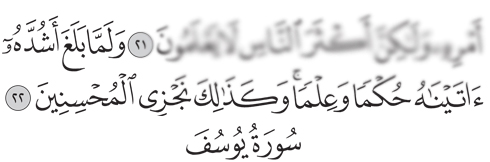 أَمْرِهِۦ وَلَٰكِنَّ أَكْثَرَ ٱلنَّاسِ لَا يَعْلَمُونَ ٢١ وَلَمَّا بَلَغَ أَشُدَّهُۥٓ
ءَاتَيْنَٰهُ حُكْمًا وَعِلْمًا ۚ وَكَذَٰلِكَ نَجْزِى ٱلْمُحْسِنِينَ ٢٢
سُورَةُ يُوسُفَ